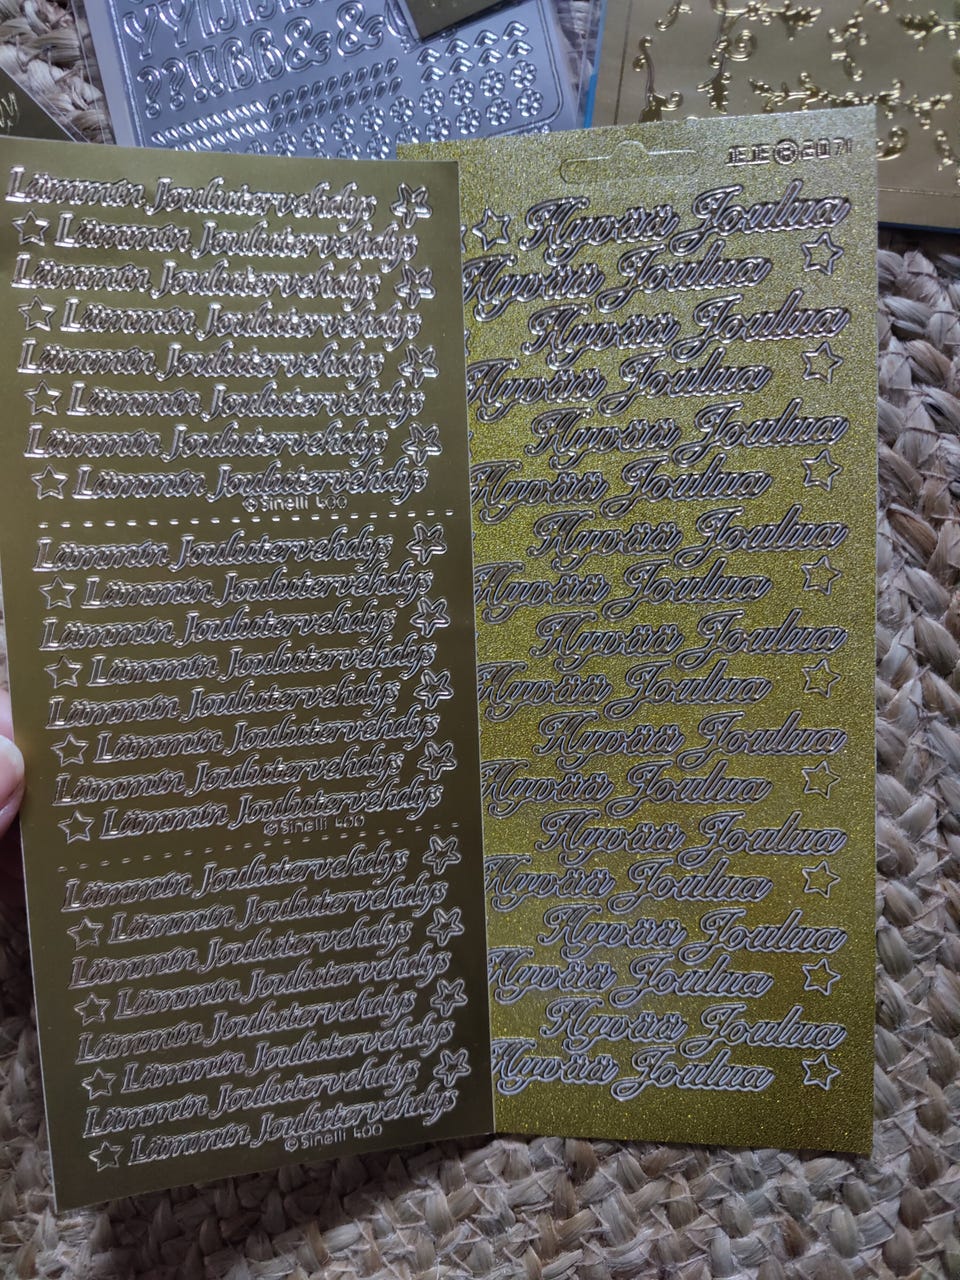 ??!!ßß&&
Lämmin Joulutervehdys
Lämmin Joulutervehdys
Lämmin Joulutervehdys
Lämmin Joulutervehdys
Lämmin Joulutervehdys
Lämmin Joulutervehdys
Lämmin Joulutervehdys
Lämmin Joulutervehdys
© Sinelli 400
Lämmin Joulutervehdys
Lämmin Joulutervehdys
Lämmin Joulutervehdys
Lämmin Joulutervehdys
Lämmin Joulutervehdys
Lämmin Joulutervehdys
Lämmin Joulutervehdys
Lämmin Joulutervehdys
© Sinelli 400
Lämmin Joulutervehdys
Lämmin Joulutervehdys
Lämmin Joulutervehdys
Lämmin Joulutervehdys
Lämmin Joulutervehdys
Lämmin Joulutervehdys
Lämmin Joulutervehdys
Lämmin Joulutervehdys
© Sinelli 400
JEJE 2071
Hyvää Joulua
Hyvää Joulua
Hyvää Joulua
Hyvää Joulua
Hyvää Joulua
Hyvää Joulua
Hyvää Joulua
Hyvää Joulua
Hyvää Joulua
Hyvää Joulua
Hyvää Joulua
Hyvää Joulua
Hyvää Joulua
Hyvää Joulua
Hyvää Joulua
Hyvää Joulua
Hyvää Joulua
Hyvää Joulua